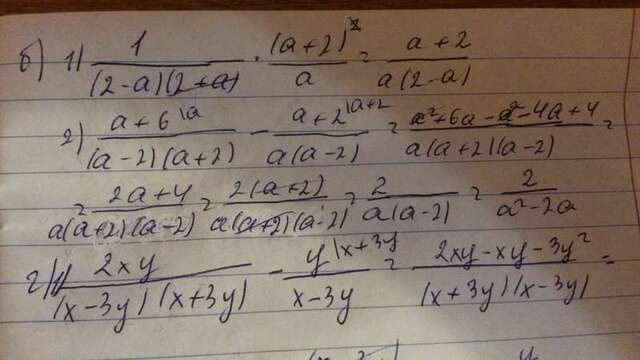 б) 1) 1/((2-a)(2+a)) · (a+2)²/a = (a+2)/(a(2-a))
2) (a+6 \a)/((a-2)(a+2)) - (a+2 \a+2)/(a(a-2)) = (a²+6a-a²-4a+4)/(a(a+2)(a-2)) =
= (2a+4)/(a(a+2)(a-2)) = (2(a+2))/(a(a+2)(a-2)) = 2/(a(a-2)) = 2/(a²-2a)
г) 1) 2xy/((x-3y)(x+3y)) - (y \x+3y)/(x-3y) = (2xy-xy-3y²)/((x+3y)(x-3y)) =